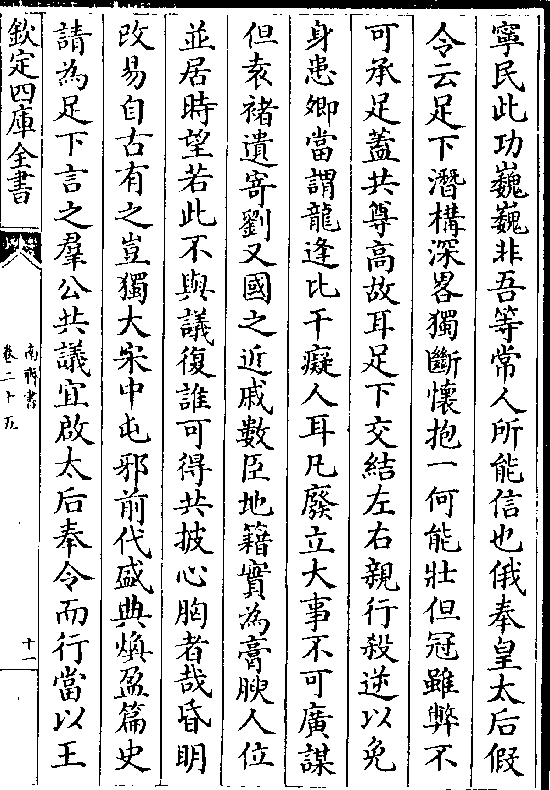 寧民此功巍巍非吾等常人所能信也俄奉皇太后假
令云足下潛構深畧獨斷懷抱一何能壯但冠雖弊不
可承足蓋共尊高故耳足下交結左右親行殺逆以免
身患卿當謂龍逢比干癡人耳凡廢立大事不可廣謀
但袁褚遺寄劉又國之近戚數臣地籍實為膏腴人位
並居時望若此不與議復誰可得共披心胸者哉昏明
改易自古有之豈獨大宋中屯邪前代盛典煥盈篇史
請為足下言之羣公共議宜啟太后奉令而行當以王
欽定四庫全書
南齊書
卷二十五
十一